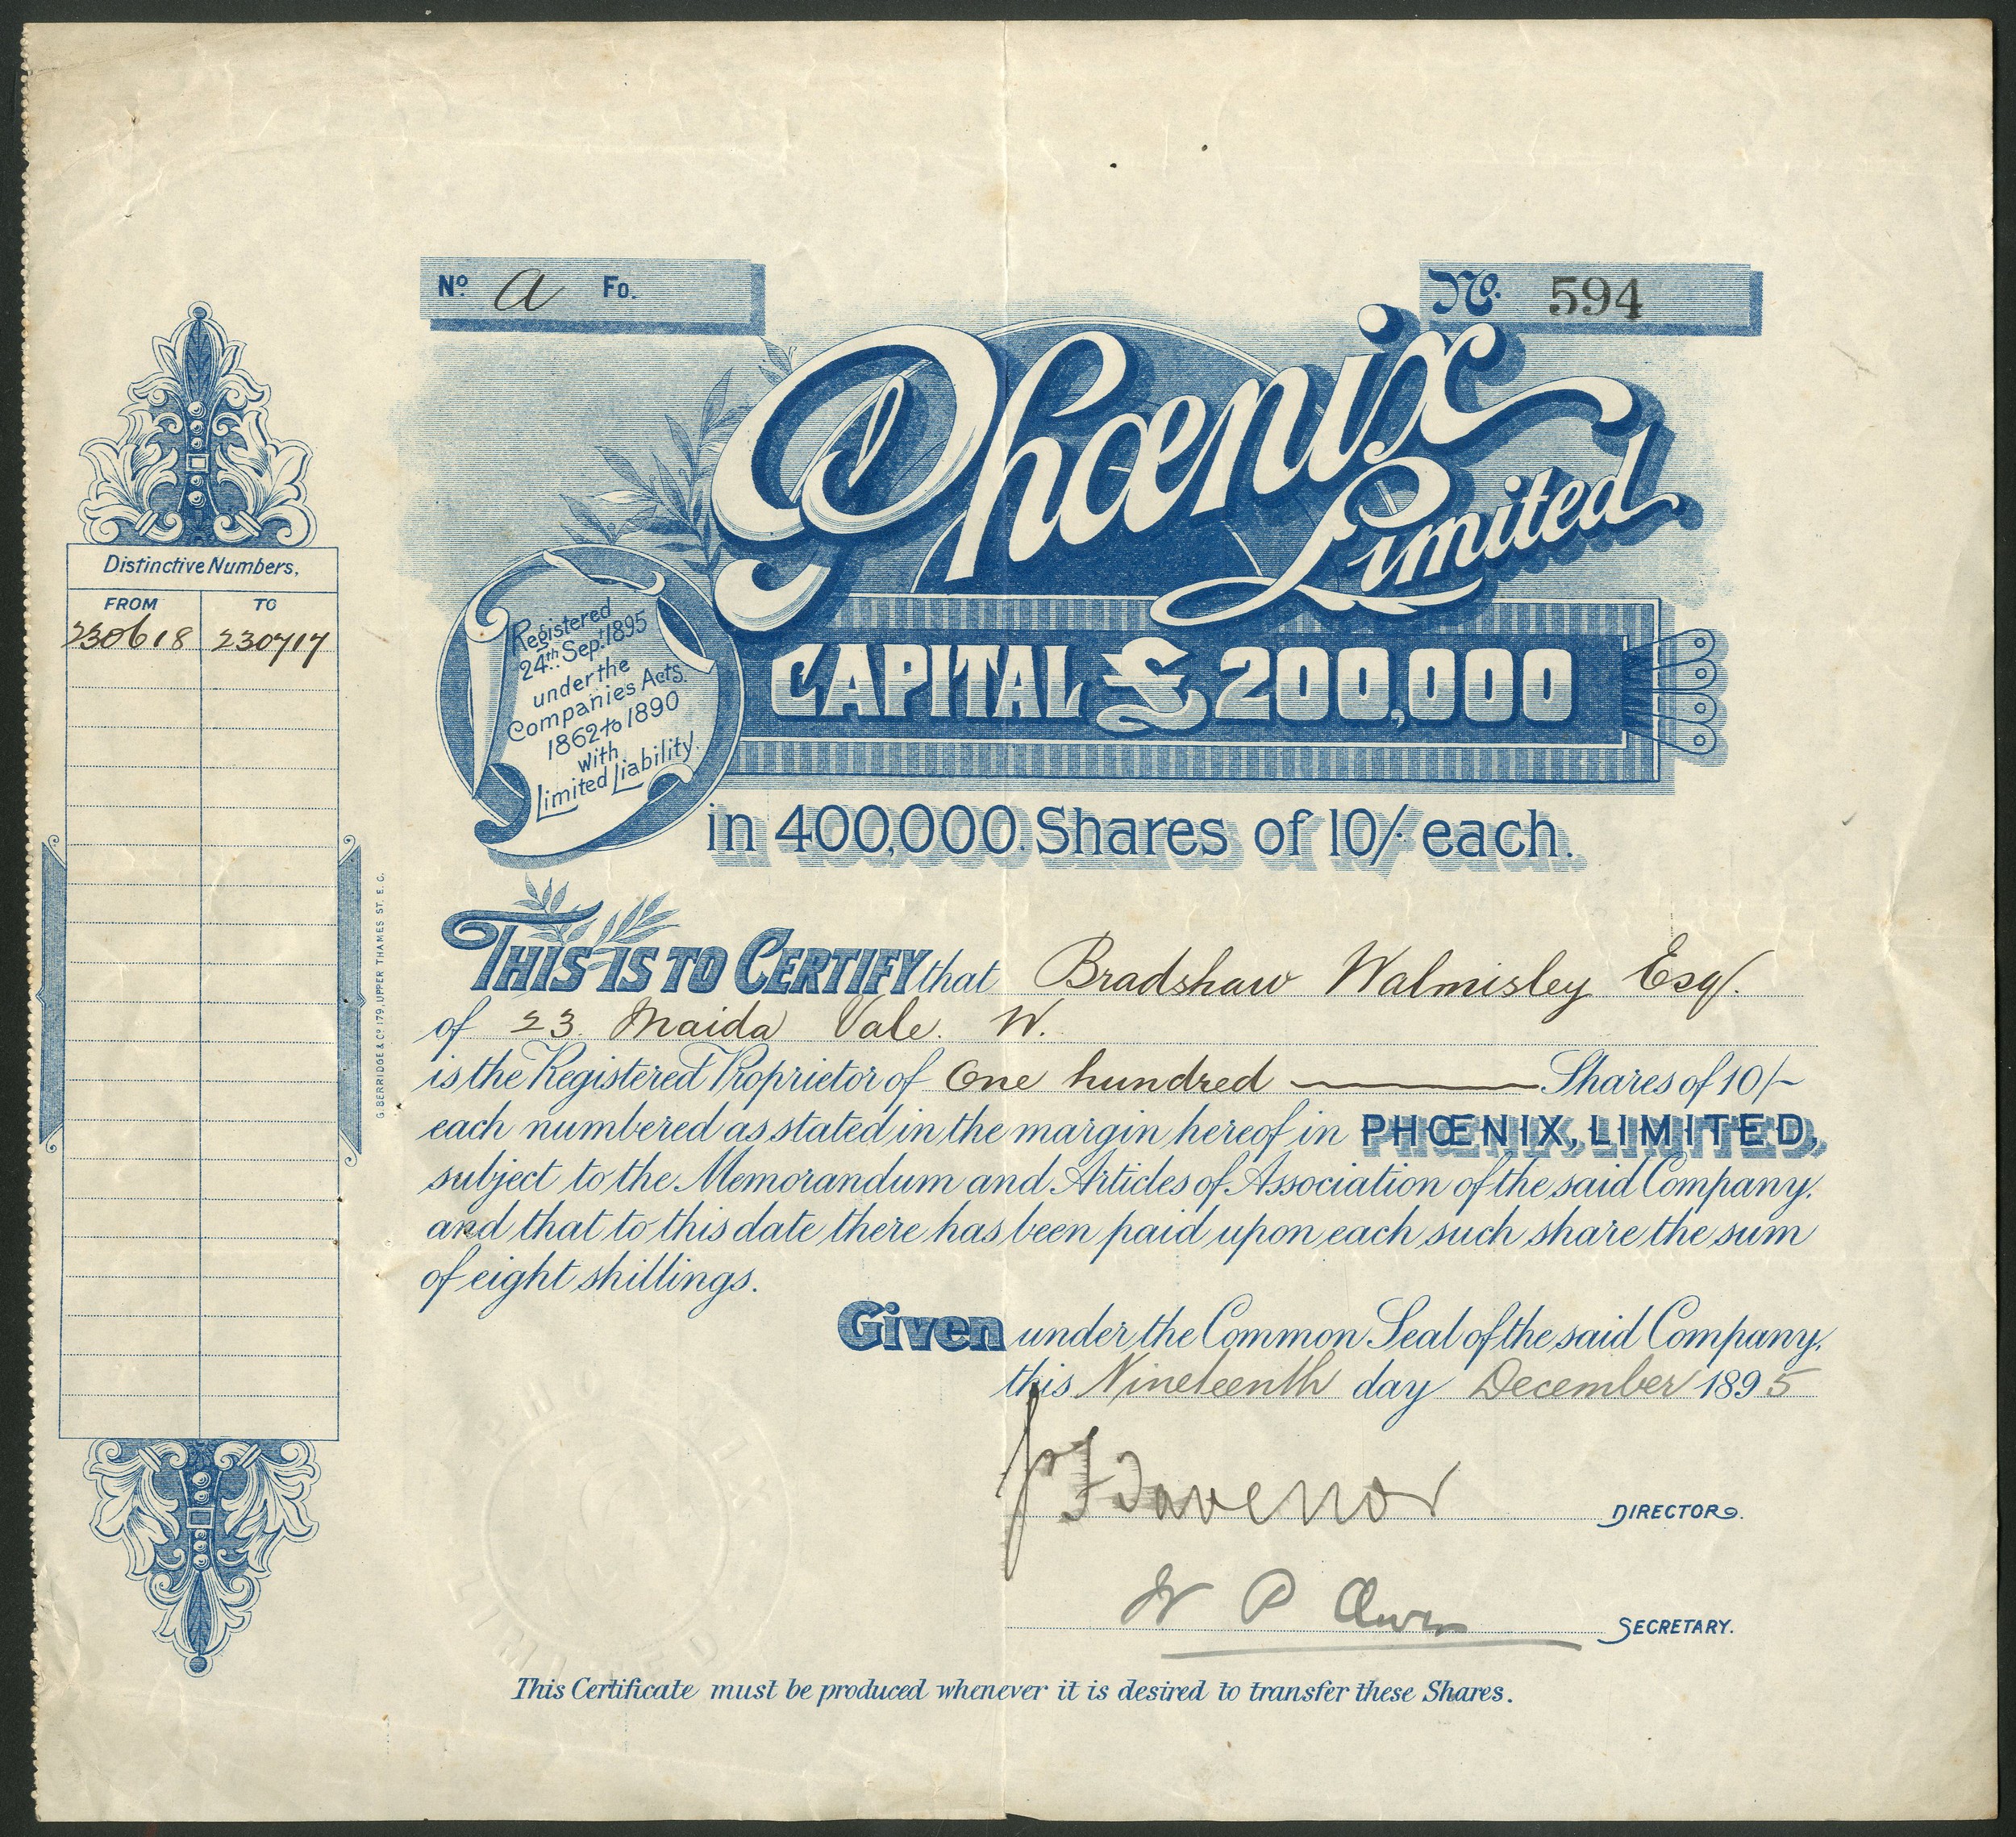 No. a Fo.
No. 594
Phœnix
Limited
CAPITAL £200,000
in 400,000 Shares of 10/- each.
Registered
24th Sept. 1895
under the
Companies Acts.
1862 to 1890
with
Limited Liability.
Distinctive Numbers,
FROM TO
230618 230717
G. BERRIDGE & CO 179, UPPER THAMES ST. E.C.
THIS IS TO CERTIFY that Bradshaw Walmisley Esqr.
of 23. Maida Vale. W.
is the Registered Proprietor of One hundred Shares of 10/-
each numbered as stated in the margin hereof in PHŒNIX, LIMITED,
subject to the Memorandum and Articles of Association of the said Company,
and that to this date there has been paid upon each such share the sum
of eight shillings.
Given under the Common Seal of the said Company,
this Nineteenth day December 1895
DIRECTORS.
W P Owen
SECRETARY.
LIMITED
This Certificate must be produced whenever it is desired to transfer these Shares.